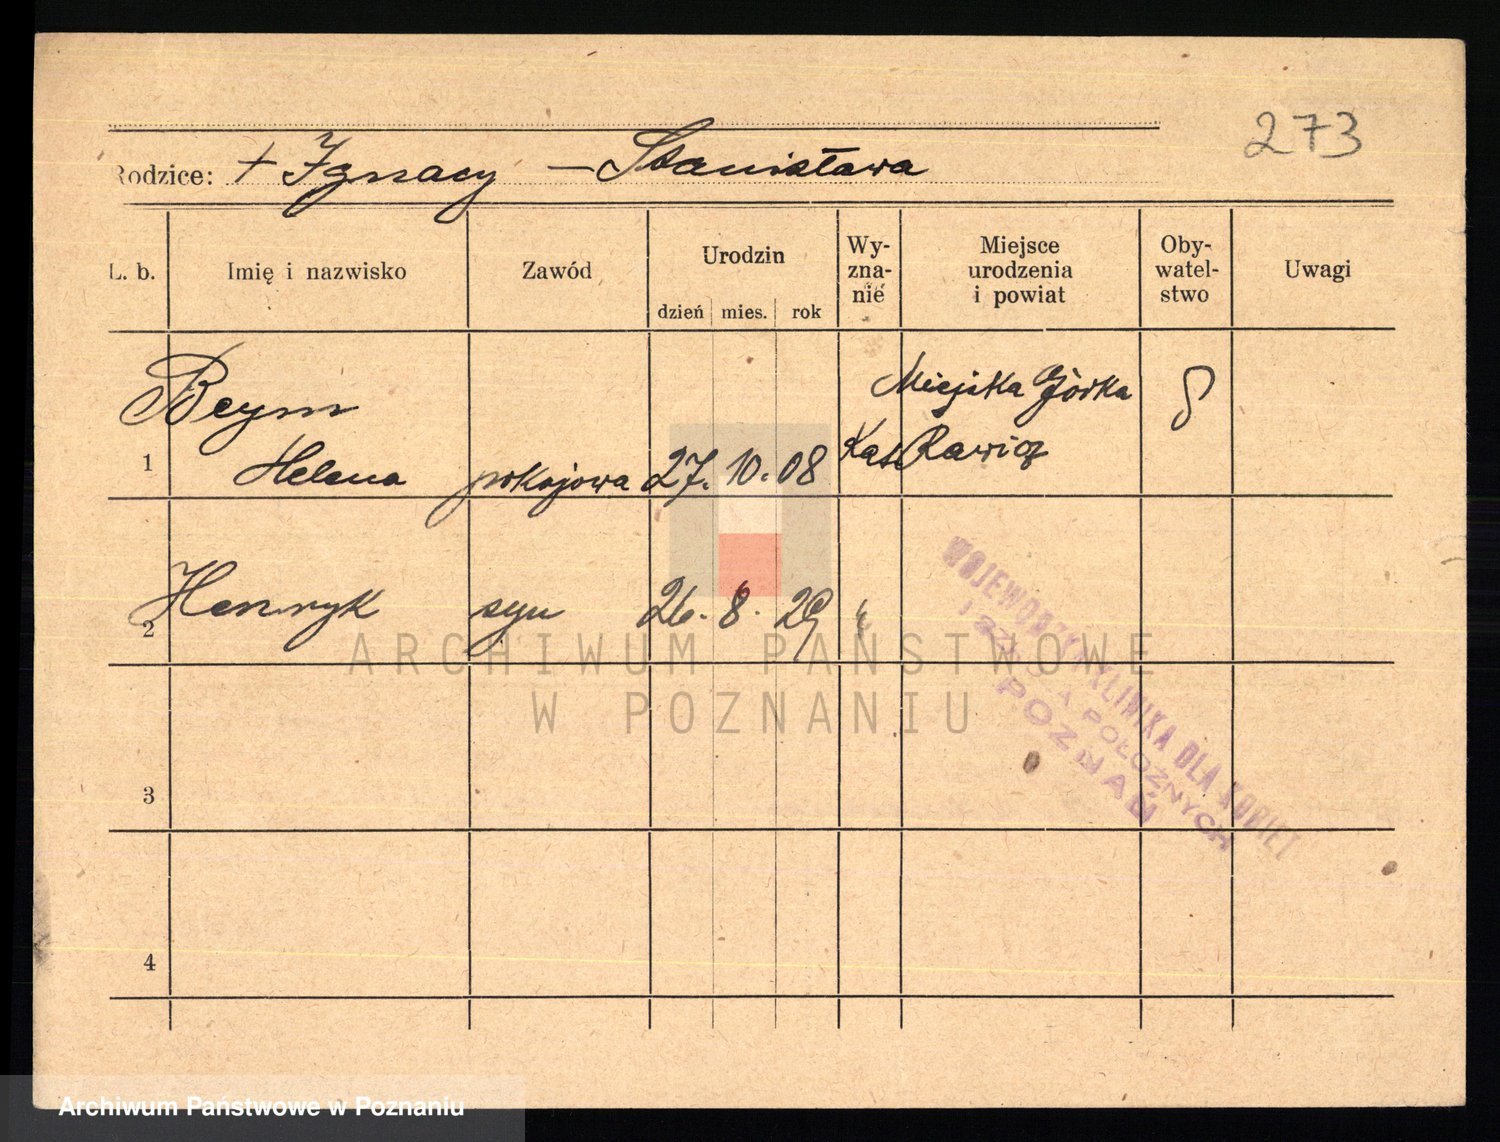 273
Rodzice: + Ignacy — Stanisława
L. b.
Imię i nazwisko
Zawód
Urodzin
dzień mies. rok
Wy-
zna-
nie
Miejsce
urodzenia
i powiat
Oby-
watel-
stwo
Uwagi
Beym
Miejska Górka
1
Helena
pokojowa
27. 10. 08
Kat.
Rawicz
2
Henryk
syn
26. 8. 29
"
WOJEWÓDZKA KLINIKA DLA KOBIET
I SZKOŁA POŁOŻNYCH
POZNAŃ
3
4
ARCHIWUM PAŃSTWOWE
W POZNANIU
Archiwum Państwowe w Poznaniu